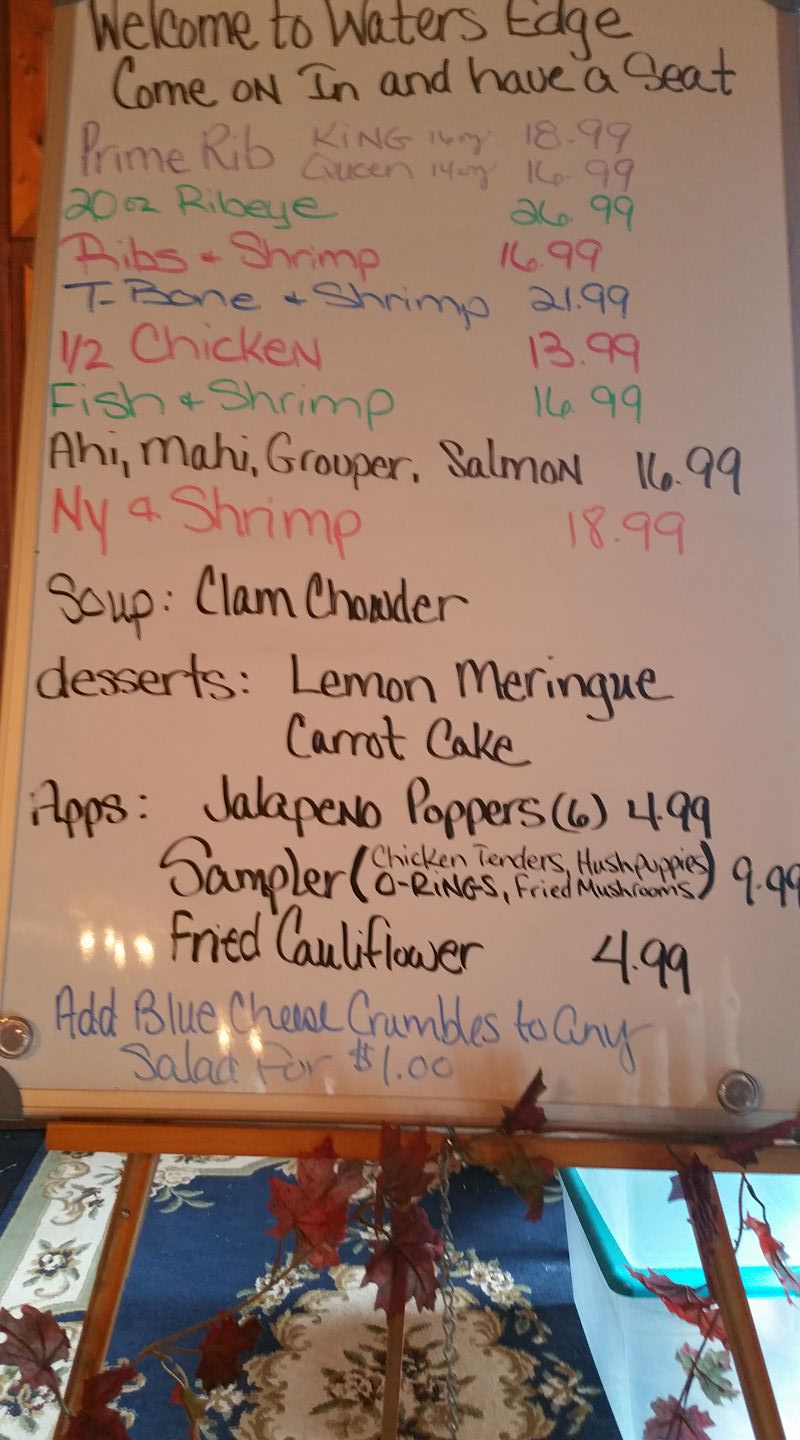 Welcome to Waters Edge
Come ON In and have a Seat
Prime Rib KING 16oz 18.99
Queen 14oz 16.99
20oz Ribeye 26.99
Ribs & Shrimp 16.99
T-Bone & Shrimp 21.99
1/2 Chicken 13.99
Fish & Shrimp 16.99
Ahi, Mahi, Grouper, Salmon 16.99
Ny & Shrimp 18.99
Soup: Clam Chowder
desserts: Lemon Meringue
Carrot Cake
Apps: Jalapeno Poppers (6) 4.99
Sampler (Chicken Tenders, Hushpuppies
O-RINGS, Fried Mushrooms) 9.99
Fried Cauliflower 4.99
Add Blue Cheese Crumbles to any
Salad For $1.00